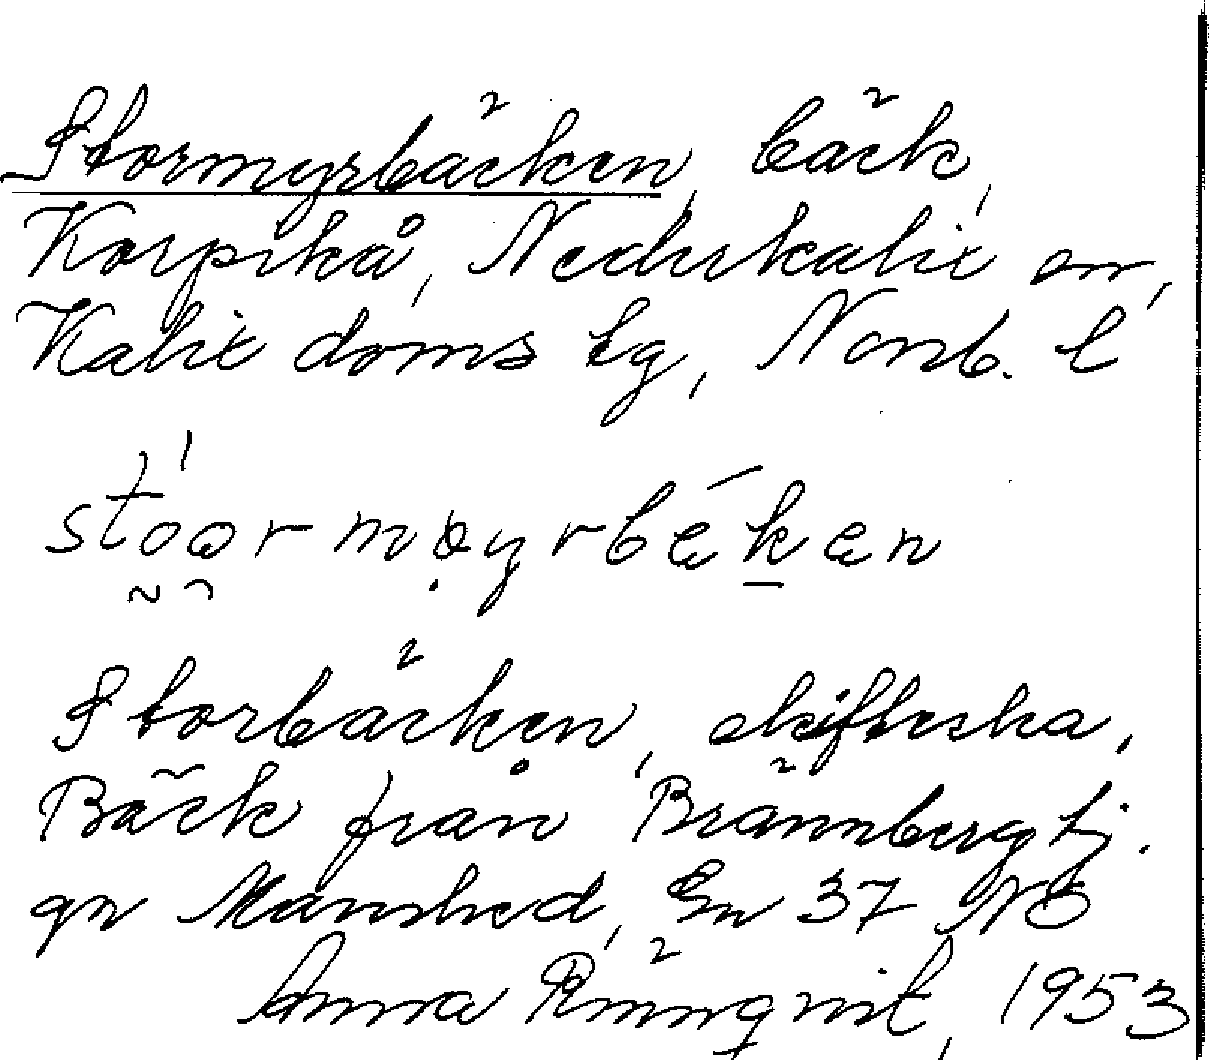 Stormyrbäcken, bäck,
Korpikå, Nederkalix sn,
Kalix doms lg, Norrb. l
stoormøyrbækæn
Storbäcken, skifteska,
Bäck från Brännbergtj.
gn Månshed, Gn 37 NO
Anna Rönnqvist, 1953